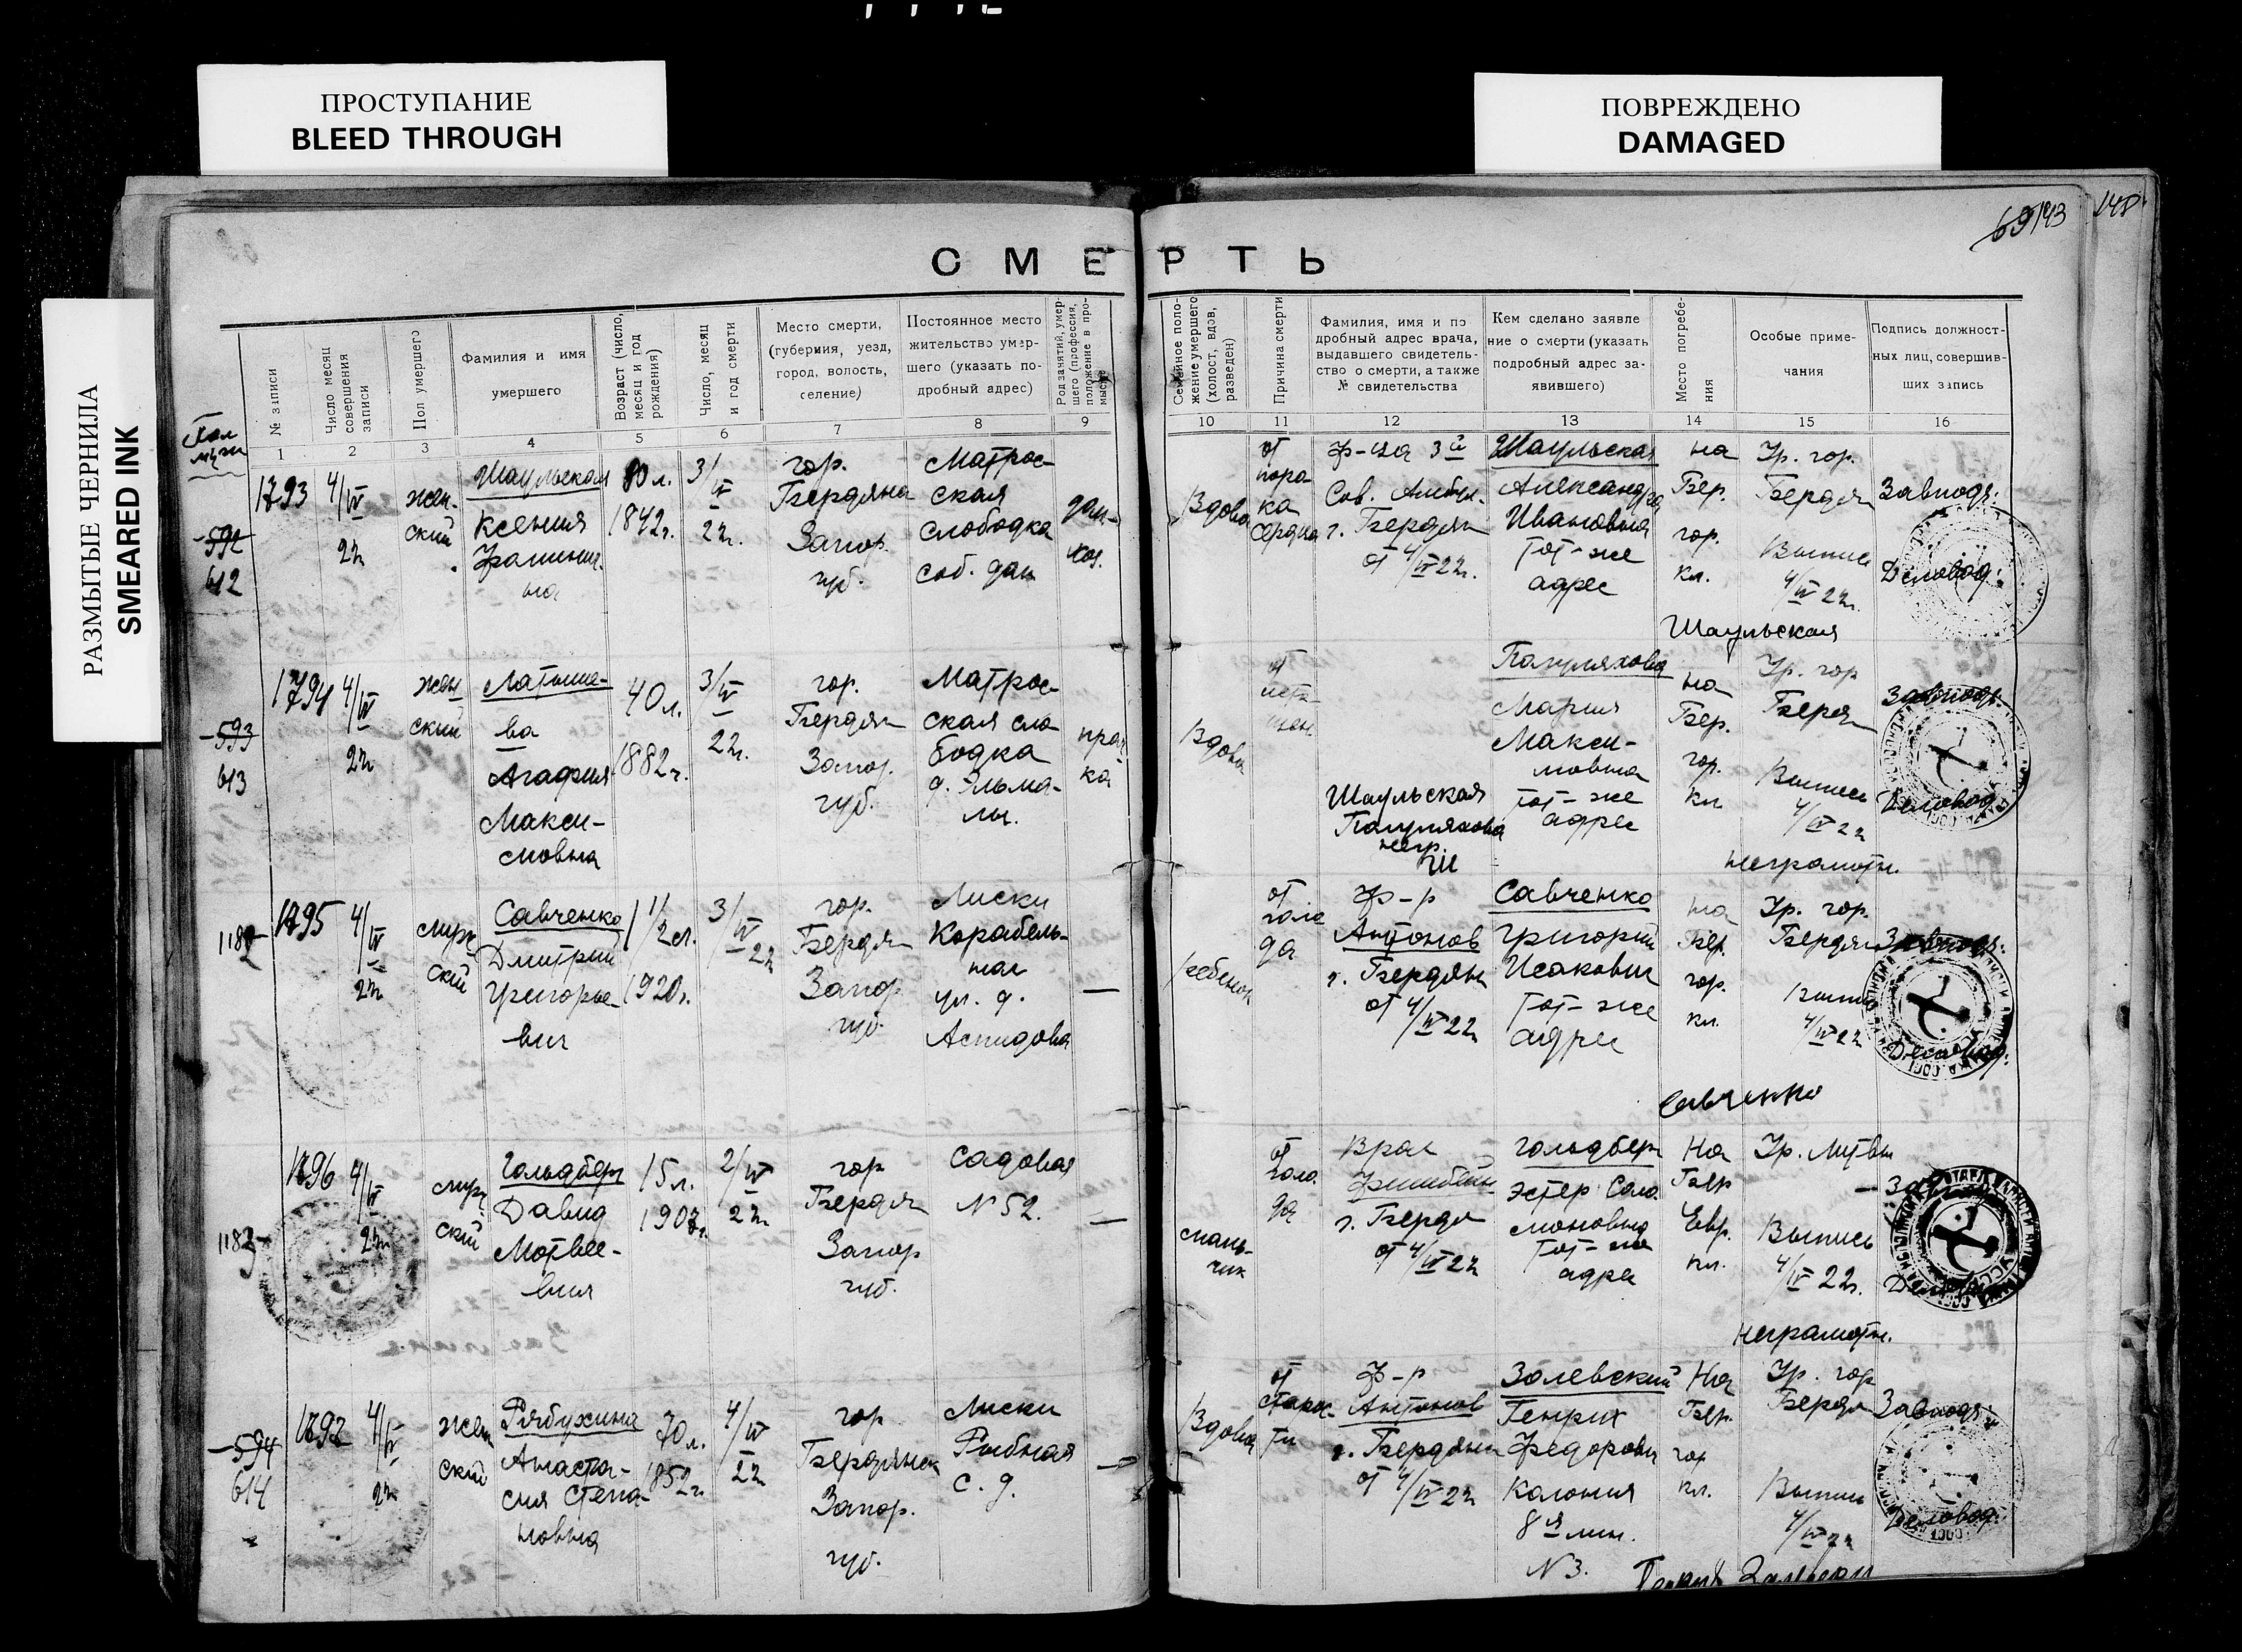 ПРОСТУПАНИЕ
BLEED THROUGH
ПОВРЕЖДЕНО
DAMAGED
РАЗМЫТЫЕ ЧЕРНИЛА
SMEARED INK
69
143
148
СМЕРТЬ
№ записи
Число месяц совершения записи
Пол умершего
Фамилия и имя
умершего
Возраст (число, месяц и год рождения)
Число, месяц и год смерти
Место смерти,
(губерния, уезд,
город, волость,
селение)
Постоянное место
жительство умер-
шего (указать по-
дробный адрес)
Род занятий, умер-
шего (профессия,
положение в про-
мысле
Семейное поло-
жение умершего
(холост, вдов,
разведен)
Причина смерти
Фамилия, имя и по
дробный адрес врача,
выдавшего свидетель-
ство о смерти, а также
№ свидетельства
Кем сделано заявле
ние о смерти (указать
подробный адрес за-
явившего)
Место погребе-
ния
Особые приме-
чания
Подпись должност-
ных лиц, совершив-
ших запись
1 2 3 4 5 6 7 8 9 10 11 12 13 14 15 16
1793
592
612
4/IV
22
жен-
ский
Шаульская
Ксения
80 л.
1842 г.
3/IV
22 г.
гор.
Бердянс
Запор.
губ.
Матрос-
ская
слободка
соб. дом
дом-
хоз.
Вдова
от
поро-
ка
сердца
Ф-ца 3й
Сов. Амбул.
г. Бердян
от 4/IV 22 г.
Шаульская
Александра
Ивановна
тот-же
адрес
на
Бер.
гор.
кл.
Гр. гор.
Бердян
Выпись
4/IV 22 г.
Завподг:
Деловод:
Шаульская
1794
593
613
4/IV
22
жен
ский
Латыше-
ва
Агафия
Макси-
мовна
40 л.
1882 г.
3/IV
22 г.
гор.
Бердян
Запор.
губ.
Матрос-
ская сло
бодка
прач
ка
Вдова
от
Мария
Макси-
мовна
тот-же
адрес
Шаульская
негр.
на
Бер.
гор.
кл
Гр. гор
Бердя
Выпись
4/IV 22
Завподг:
Деловод:
неграмотн.
1795
1182
4/IV
22
муж
ский
Савченко
Дмитрий
Григорье
вич
1 1/2 л.
1920 г.
3/IV
22
гор.
Бердян
Запор
губ.
Лиски
Корабель-
ная
ул. д.
Аспидова
—
ребенок
от
голо
да
Ф-р
Антонов
г. Бердян
от 4/IV 22
Савченко
Григорий
Исакович
тот-же
адрес
на
Бер.
гор.
кл.
Гр. гор.
Бердян
Выпись
4/IV 22
Завподг:
Деловод:
Савченко
1796
1183
4/IV
22
муж
ский
Гольдберг
Давид
Мотвее-
вич
15 л.
1907 г.
2/IV
22
гор
Бердян
Запор
губ.
Садовая
N 52.
—
маль-
чик
от
голо
да
Врач
г. Бердя
от 4/IV 22
Гольдберг
Эстер Соло
моновна
тот-же
адрес
На
Бер
Евр.
кл.
Гр. Литвы
Выпись
4/IV 22 г.
неграмотн.
1797
594
614
4/IV
22
жен
ский
Рябухина
Анаста-
сия Степа-
новна
70 л.
1852 г.
4/IV
22
гор
Бердянск
Запор.
губ.
Лиски
Рыбная
с. д.
—
Вдова
от
старос-
ти
Ф-р
Антонов
г. Бердян
от 4/IV 22
Залевский
Генрих
Федорович
Колония
8я лин.
N 3.
На
Бер.
гор
кл.
Гр. гор
Бердя
Выпись
4/IV 22
Завподг:
Деловод: